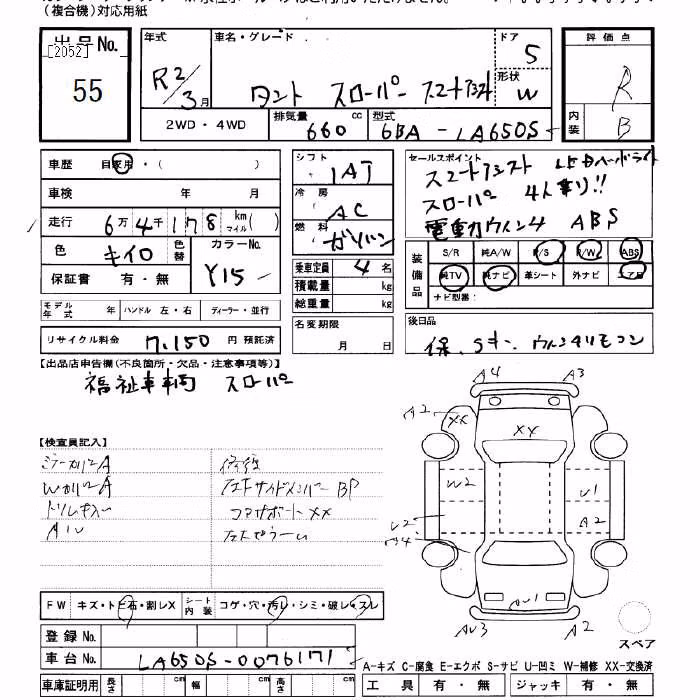 (複合機)対応用紙
出品No.
[2052]
55
年式
R2/3月
車名・グレード
タント スローパー スマートアシスト
ドア
5
形状
W
2WD・4WD
排気量
660 cc
型式
6BA-LA650S
評価点
R
内装
B
車歴 自家用・( )
車検 年 月
走行 6万4千178 km マイル( )
色 キイロ
色替
カラーNo.
Y15
保証書 有・無
シフト
IAT
冷房
AC
燃料
ガソリン
乗車定員 4 名
積載量 kg
総重量 kg
セールスポイント
スマートアシスト LEDヘッドライト
スローパー 4人乗り!!
電動ウィンチ ABS
装備品
S/R 純A/W P/S P/W ABS
純TV 純ナビ 革シート 外ナビ エアB
ナビ型番:
モデル年式 年 ハンドル 左・右 ディーラー・並行
リサイクル料金 7,150 円 預託済
名変期限
月 日
後日品
保、Sキー、ウィンチリモコン
【出品店申告欄(不良箇所・欠品・注意事項等)】
福祉車輌 スローパー
【検査員記入】
ミラーカバーA 修復
WカバーA
トリムキズ コアサポートXX
F W キズ・トビ石・割レX
シート内装 コゲ・穴・汚レ・シミ・破レ・スレ
登録No.
車台No. LA650S-0076171
車庫証明用 長さ cm 幅 cm 高さ cm
A4 A3
A2 XX
XX
W2 U1
A2
U2
AU1
AU3 A2
スペア
A-キズ C-腐食 E-エクボ S-サビ U-凹ミ W-補修 XX-交換済
工具 有・無 ジャッキ 有・無